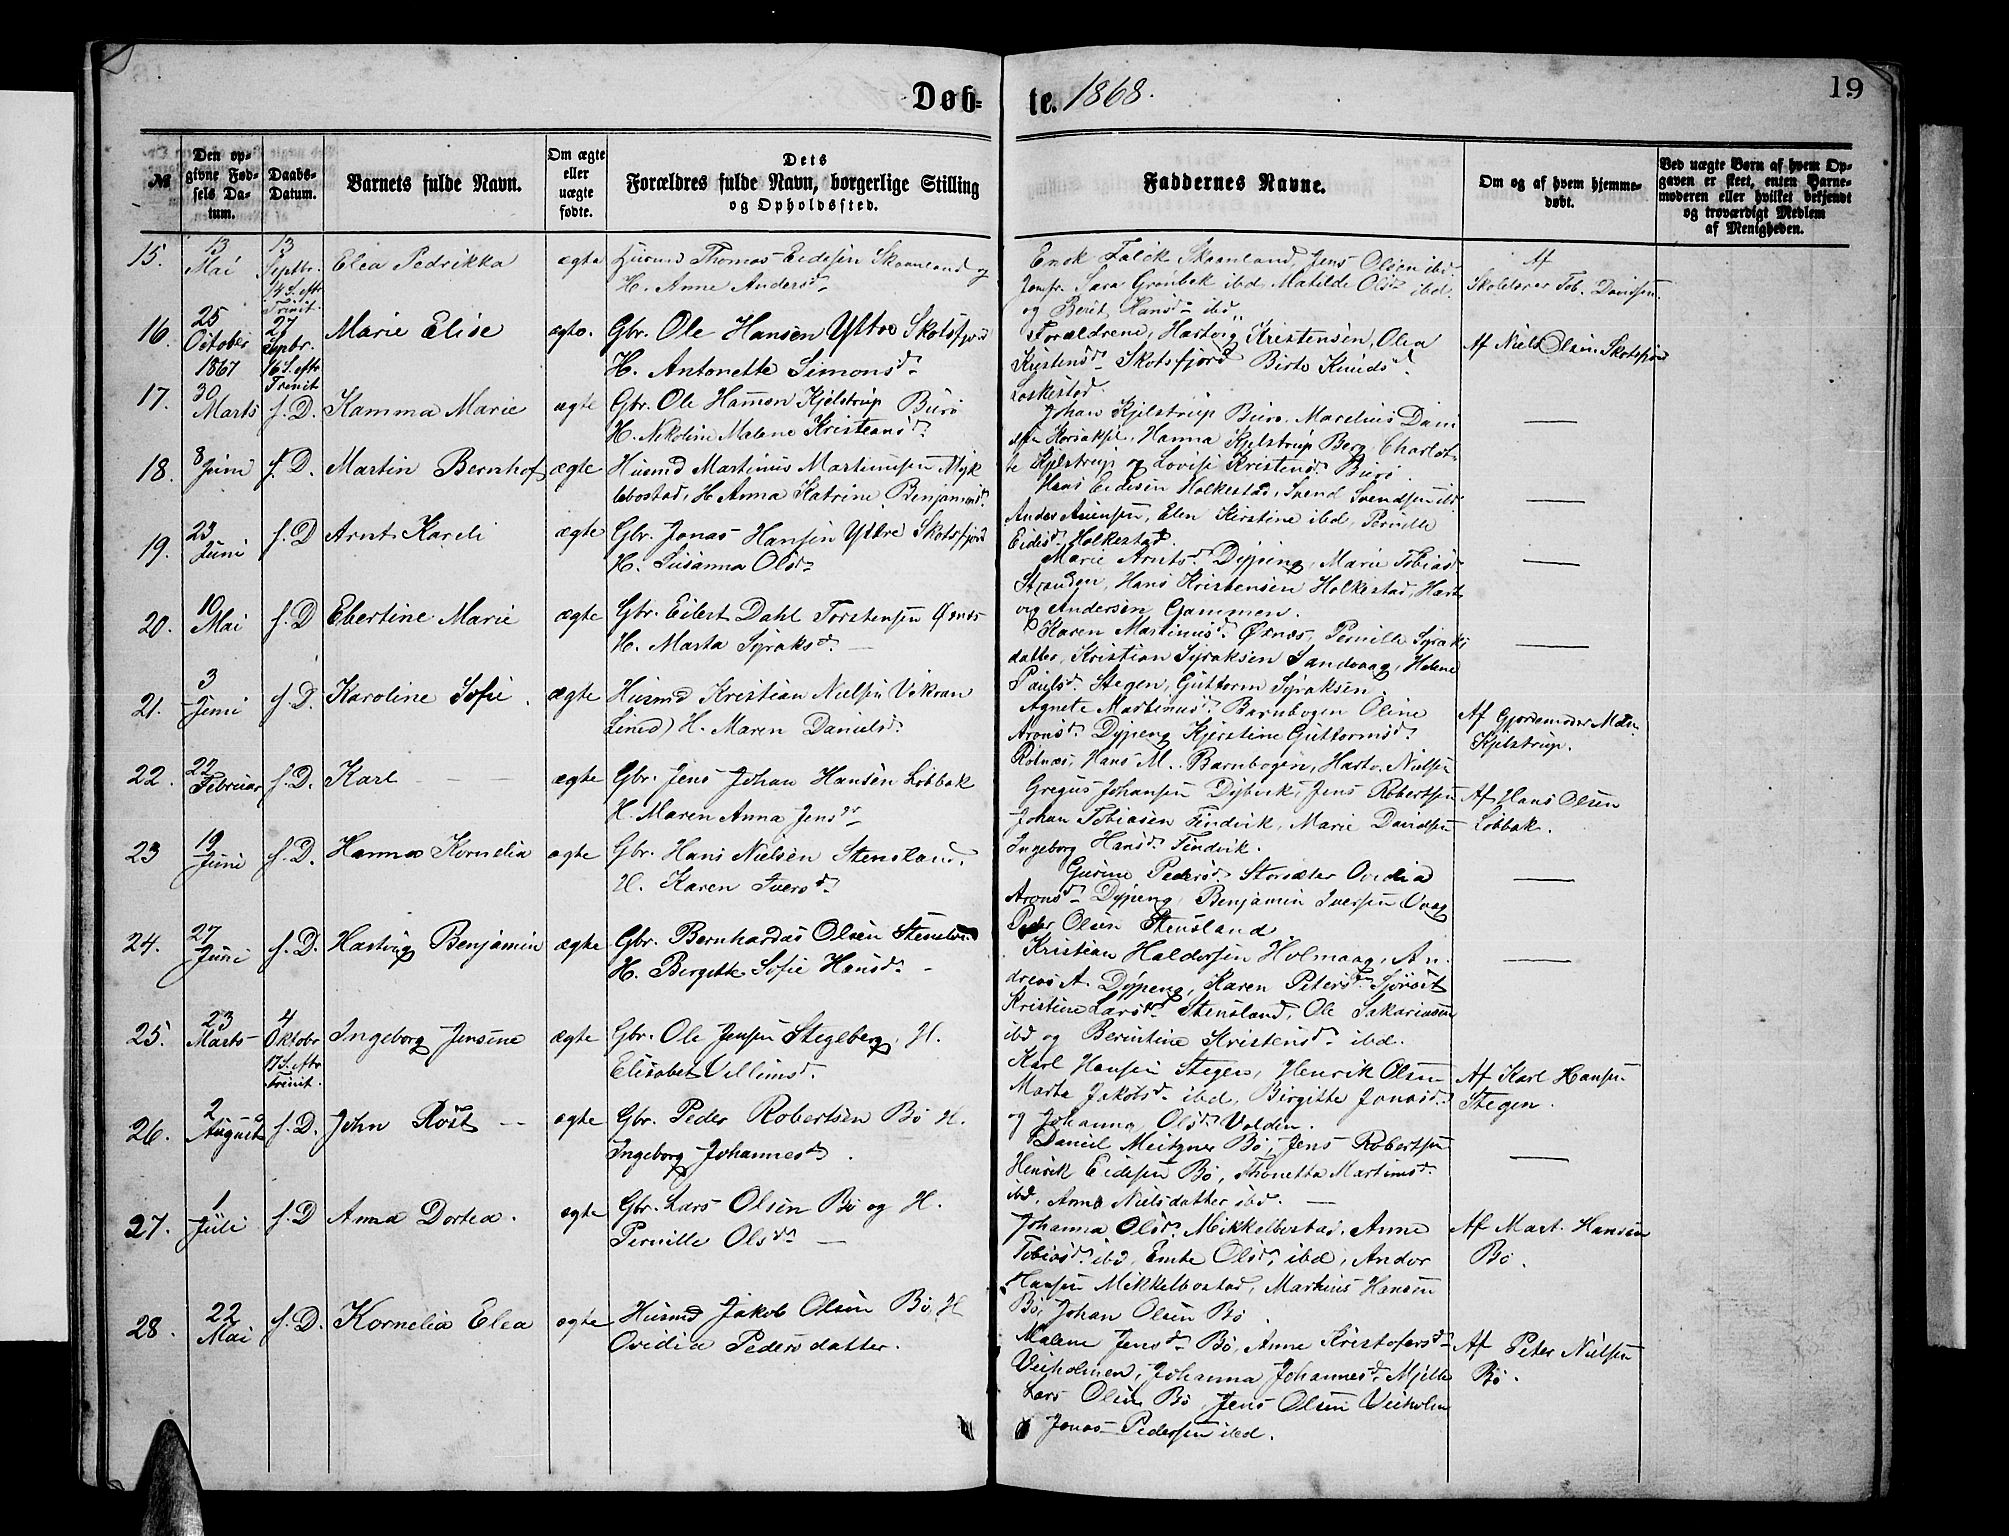 Døb-
te. 1868.
19
№
Den op-
givne Fød-
sels Da-
tum.
Daabs-
Datum.
Barnets fulde Navn.
Om ægte
eller
uægte
fødte.
Dets
Forældres fulde Navn, borgerlige Stilling
og Opholdssted.
Faddernes Navne.
Om og af hvem hjemme-
døbt.
Ved uægte Børn af hvem Op-
gaven er skeet, enten Barne-
moderen eller hvilket bekjendt
og troværdigt Medlem
af Menigheden.
15.
13
Mai
13
Septbr.
14 S. eftr
Trinit.
Elea Pedrikka
ægte
Husmd Thomas Eidesen Skaanland og
H. Anne Andersd.
Enok Falck Skaanland, Jens Olsen ibd.
Jomfr. Sara Grønbek ibd, Matilde Olsd. ibd.
og Berit Hansd. ibd.
Af
Skolelærer Tob. Davidsen.
16.
25
October
1867
27
Septbr.
16 S. eftr
Trinit
Marie Elise
ægte.
Gbr. Ole Hansen Yttre Skotsfjord
H. Antonette Simonsd.
Forældrene, Hartvig Kristensen, Olea
Kristensd. Skotsfjord Birte Knudsd.
Laskestad.
Af Niels Olsen Skotsfjord
17.
30
Marts
f. D.
Kamma Marie
ægte
Gbr. Ole Hamon Kjelstrup Burø
H. Nikoline Malene Kristensd.
Johan Kjelstrup Burø. Marelius Dani
elsen, Hanna Kjelstrup Berg, Charlot-
te Kjelstrup og Lovise Kristensd. Burø
18.
8
Juni
f. D.
Martin Bernhof
ægte
Husmd Martinus Martinusen Myk
lebostad, H. Anna Katrine Benjaminsd.
Hans Eidesen Holkestad, Svend Svendsen ibd.
Anders, Elen Kirstine ibd, Pernille
Eidesd. Holkestad.
19.
23
Juni
f. D
Arnt Kareli
ægte
Gbr. Jonas Hansen Yttre Skotsfjord
H. Susanna Olsd.
Marie Arntsd. Dypeng, Marie Tobiasd.
Stranden, Hans Kristensen Holkestad, Hart
vig Andersen Gammen.
20.
10
Mai
f. D
Ebertine Marie
ægte
Gbr. Eilert Dahl Torstensen Ørnes
H. Marta Syraksd.
Karen Martinusd. Ørnes, Pernille Syraks
datter, Kristian Syraksen Sandvaag, Helene
Paulsd. Stegen, Guttorm Syraksen
21.
3
Juni
f. D.
Karoline Sofie.
ægte
Husmd Kristian Nielsen Vikran
Lund) H. Maren Danielsd.
Agnete Martinusd. Barnbogen Oline
Aronsd. Dypeng Kjerstine Guttormsd.
Rotnæs, Hans M. Barnbogen, Hartv. Nielsen
Af Gjordemoder
Kjelstrup.
22.
22
Februar
f. D.
Karl
ægte
Gbr. Jens Johan Hansen Løbbak
H. Maren Anna Jensd.
Gregus Johansen Dybvik, Jens Robertsen
Johan Tobiasen Findvik, Marie Davidsen
Ingeborg Hansd. Findvik.
Af Hans Olsen
Løbbak.
23
19
Juni
f. D.
Hanna Kornelia
ægte
Gbr. Hans Nielsen Stensland.
H. Karen Iversd.
Gurine Pedersd. Storsæter Ovidia
Aronsd. Dypeng, Benjamin Iversen
Peder Olsen Stensland
24.
27
Juni
f. D.
Hartvig Benjamin
ægte
Gbr. Bernhardas Olsen Stensland
H. Bergette Sofie Hansd.
Kristian Haldorsen Holmaag, An-
dreas A. Dypeng, Karen Petersd.
Kristine Larsd. Stensland, Ole Sakariasen
ibd og Berntine Kristensd. ibd.
25.
23
Marts
4
Oktobr
17 S. eftr
Trinit.
Ingeborg Jensine
ægte
Gbr. Ole Jensen Stegberg, H.
Elisabet Villumsd.
Karl Hansen Stegen, Henrik Olsen
Marta Jakobsd. ibd, Birgitte Jonasd.
og Johanna Olsd. Volden.
Af Karl Hansen
Stegen.
26.
2
August
f. D.
John Røst
ægte
Gbr. Peder Robertsen Bø H.
Ingeborg Johannesd.
Daniel Meitzner Bø, Jens Robertsen
Henrik Eidesen Bø, Thonetta Martinusd.
ibd, Anna Nielsdatter ibd.
27.
1
Juli
f. D
Anna Dortea.
ægte
Gbr. Lars Olsen Bø og H.
Pernille Olsd.
Johanna Olsd. Mikkelbostad, Anne
Tobiasd. ibd, Olsd. ibd, Andor
Hansen Mikkelbostad, Markus Hansen
Bø, Johan Olsen Bø
Af Mart. Hansen
Bø.
28.
22
Mai
f. D.
Kornelia Elea
ægte
Husmd Jakob Olsen Bø, H
Ovidia Pedersdatter.
Malene Jensd. Bø, Anne Kristofersd.
Veiholmen, Johanna Johannesd. Mjelle
Lars Olsen Bø, Jens Olsen Veiholm
Jonas Pedersen ibd.
Af Peter Nielsen
Bø.